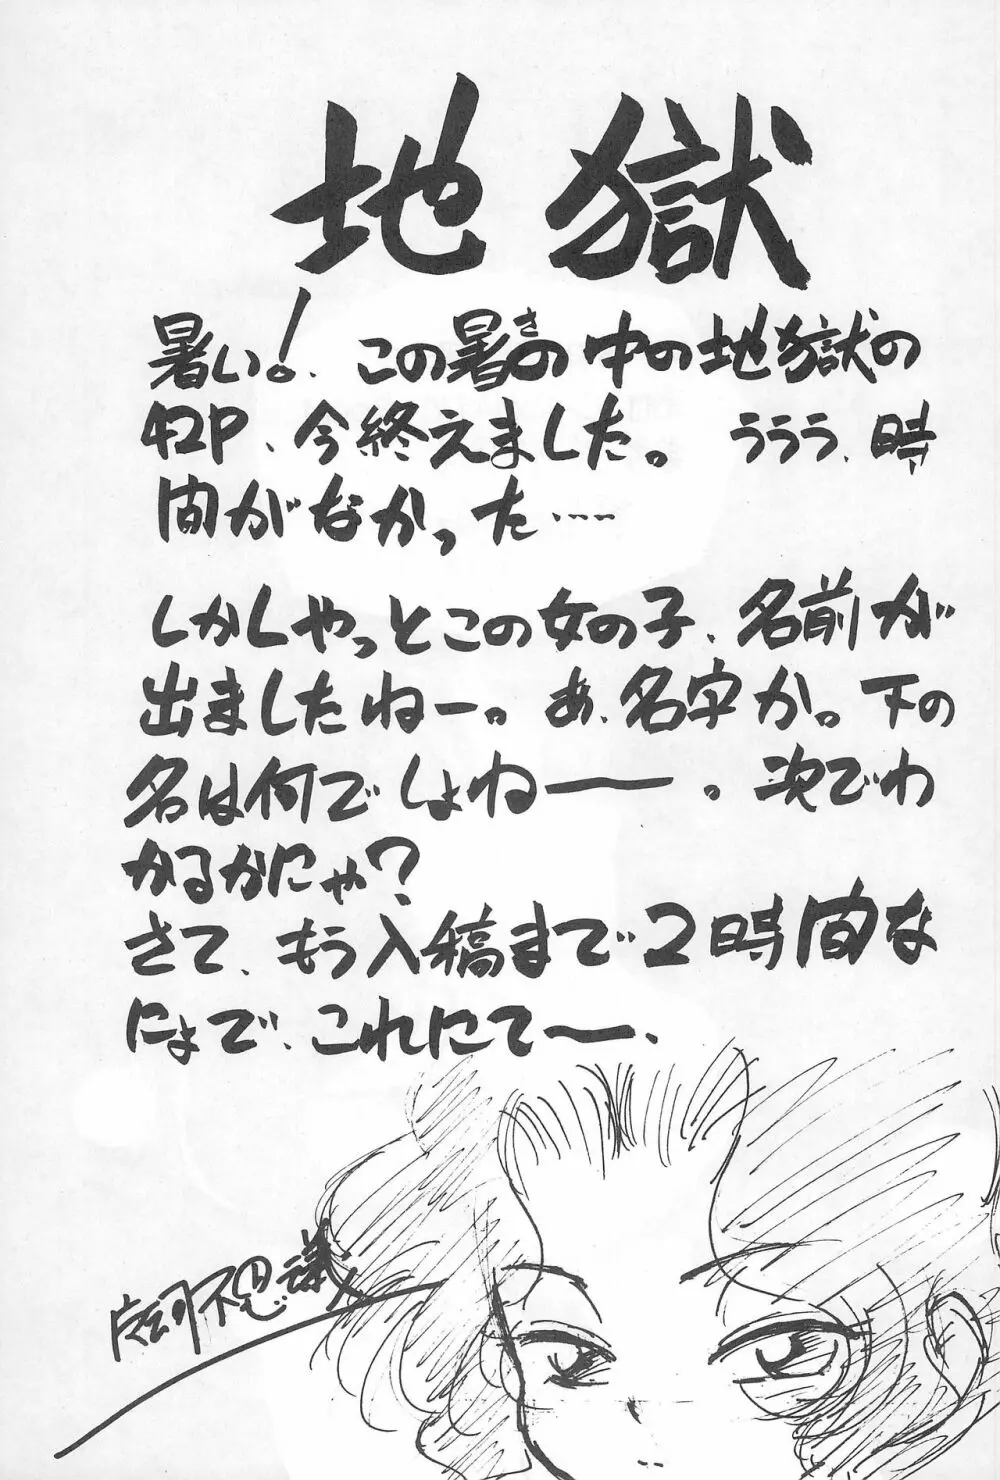 地獄
暑い！、この暑さの中の地獄の
42P、今終えました。ううう、時
間がなかった……
しかしやっとこの女の子、名前が
出ましたねー。あ、名字か。下の
名は何でしょねー。次でわ
かるかにゃ？
さて、もう入稿まで2時間な
にょで、これにてー、
不思議